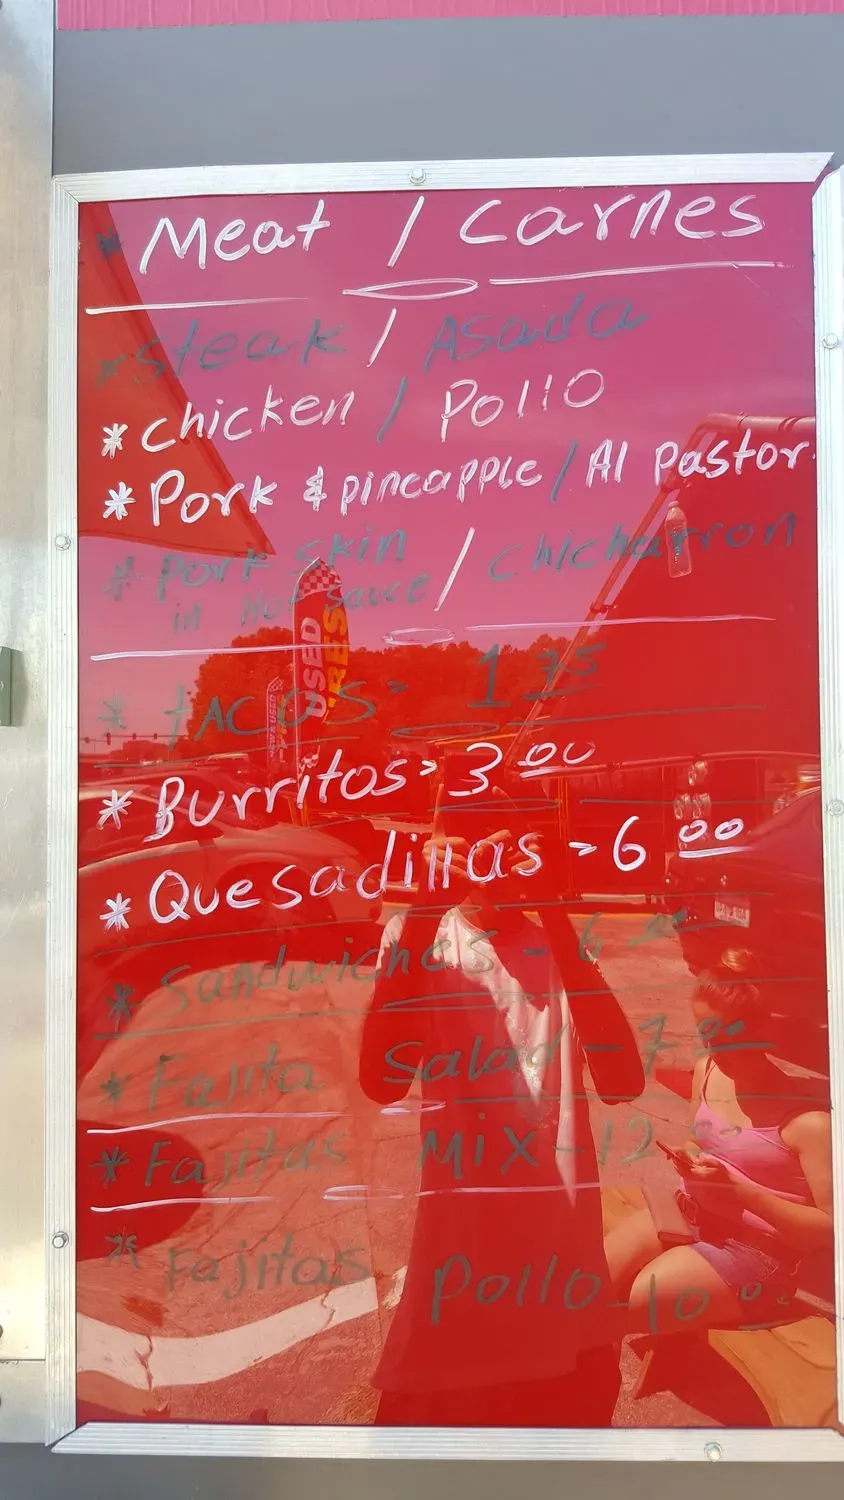 * Meat / Carnes
* Steak / Asada
* Chicken / Pollo
* Pork & pineapple / Al Pastor
* Pork Skin / Chicharron
in Hot Sauce
* TACOS - 1 75
* Burritos - 3 00
* Quesadillas - 6 00
* Sandwiches - 6 00
* Fajita Salad - 7 00
* Fajitas Mix - 12 00
* Fajitas Pollo - 10 00
USED
TIRES